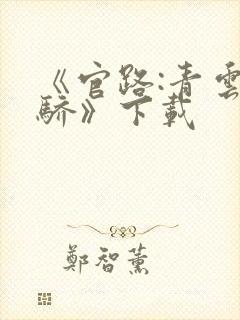 《官路:青雲
驕》下載
鄭智薰